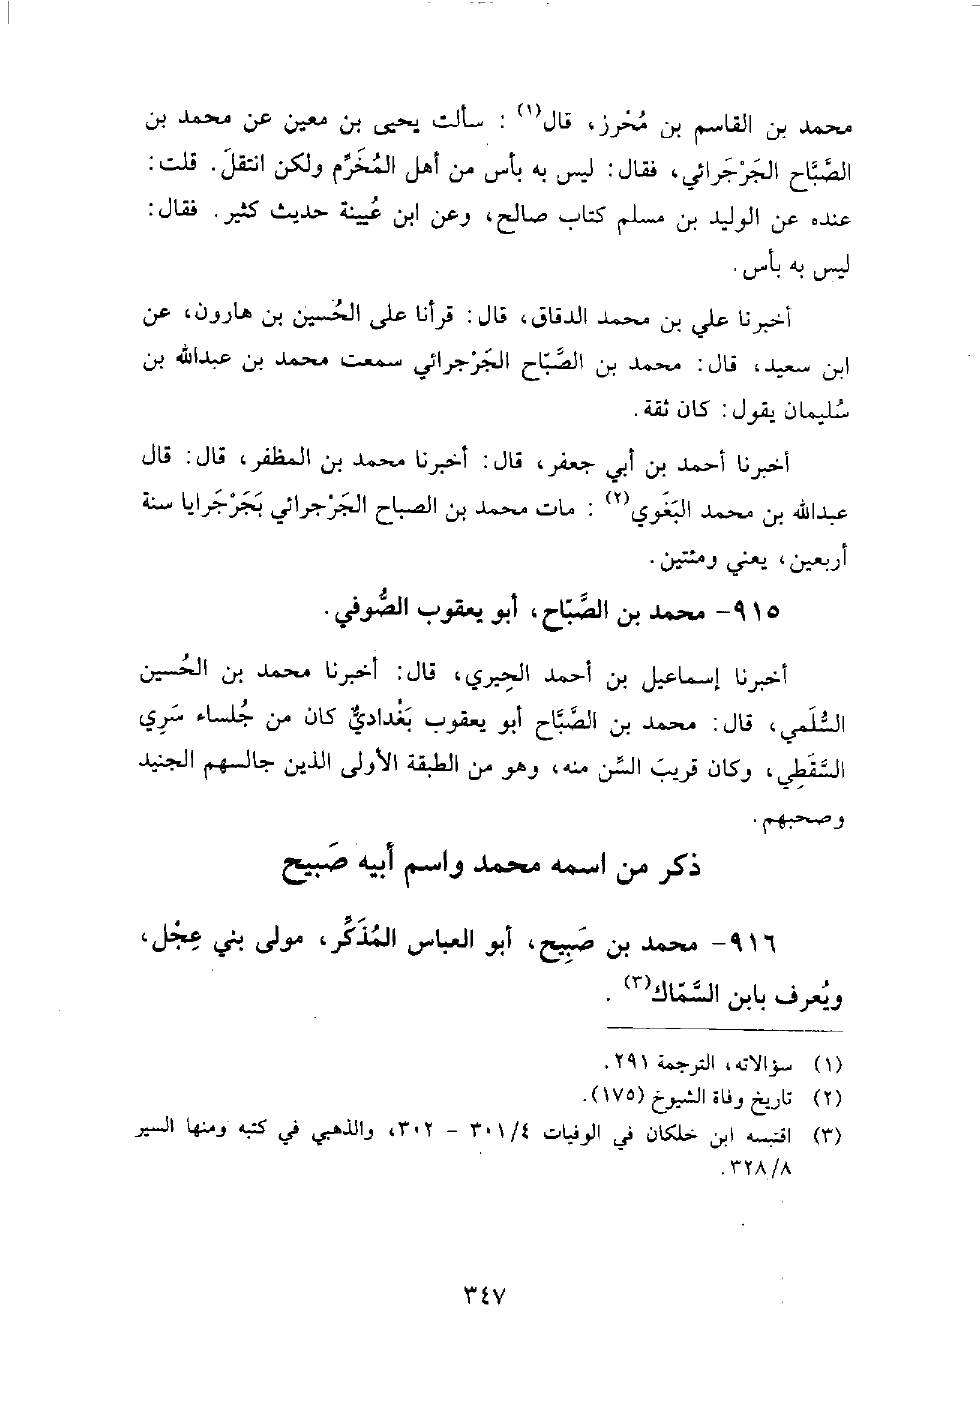 محمد بن القاسم بن مُحْرز، قال(١) : سألت يحيى بن معين عن محمد بن
الصَّبَّاح الجَرْجَرائي، فقال: ليس به بأس من أهل المُخَرِّم ولكن انتقلَ. قلت:
عنده عن الوليد بن مسلم كتاب صالح، وعن ابن عُيينة حديث كثير. فقال:
ليس به بأس.
أخبرنا علي بن محمد الدقاق، قال: قرأنا على الحُسين بن هارون، عن
ابن سعيد، قال: محمد بن الصَّبَّاح الجَرْجرائي سمعت محمد بن عبدالله بن
سُليمان يقول: كان ثقة.
أخبرنا أحمد بن أبي جعفر، قال: أخبرنا محمد بن المظفر، قال: قال
عبدالله بن محمد البَغَوي(٢) : مات محمد بن الصباح الجَرْجرائي بَجَرْجَرايا سنة
أربعين، يعني ومئتين.
٩١٥- محمد بن الصَّبَّاح، أبو يعقوب الصُّوفي.
أخبرنا إسماعيل بن أحمد الحِيري، قال: أخبرنا محمد بن الحُسين
السُّلَمي، قال: محمد بن الصَّبَّاح أبو يعقوب بَغْداديٌّ كان من جُلساء سَرِي
السَّقَطِي، وكان قريبَ السِّن منه، وهو من الطبقة الأولى الذين جالسهم الجنيد
وصحبهم.
ذكر من اسمه محمد واسم أبيه صَبيح
٩١٦- محمد بن صَبِيح، أبو العباس المُذَكِّر، مولى بني عِجْل،
ويُعرف بابن السَّمّاك(٣) .
(١) سؤالاته، الترجمة ٢٩١.
(٢) تاريخ وفاة الشيوخ (١٧٥).
(٣) اقتبسه ابن خلكان في الوفيات ٣٠١/٤ - ٣٠٢، والذهبي في كتبه ومنها السير
٣٢٨/٨.
٣٤٧